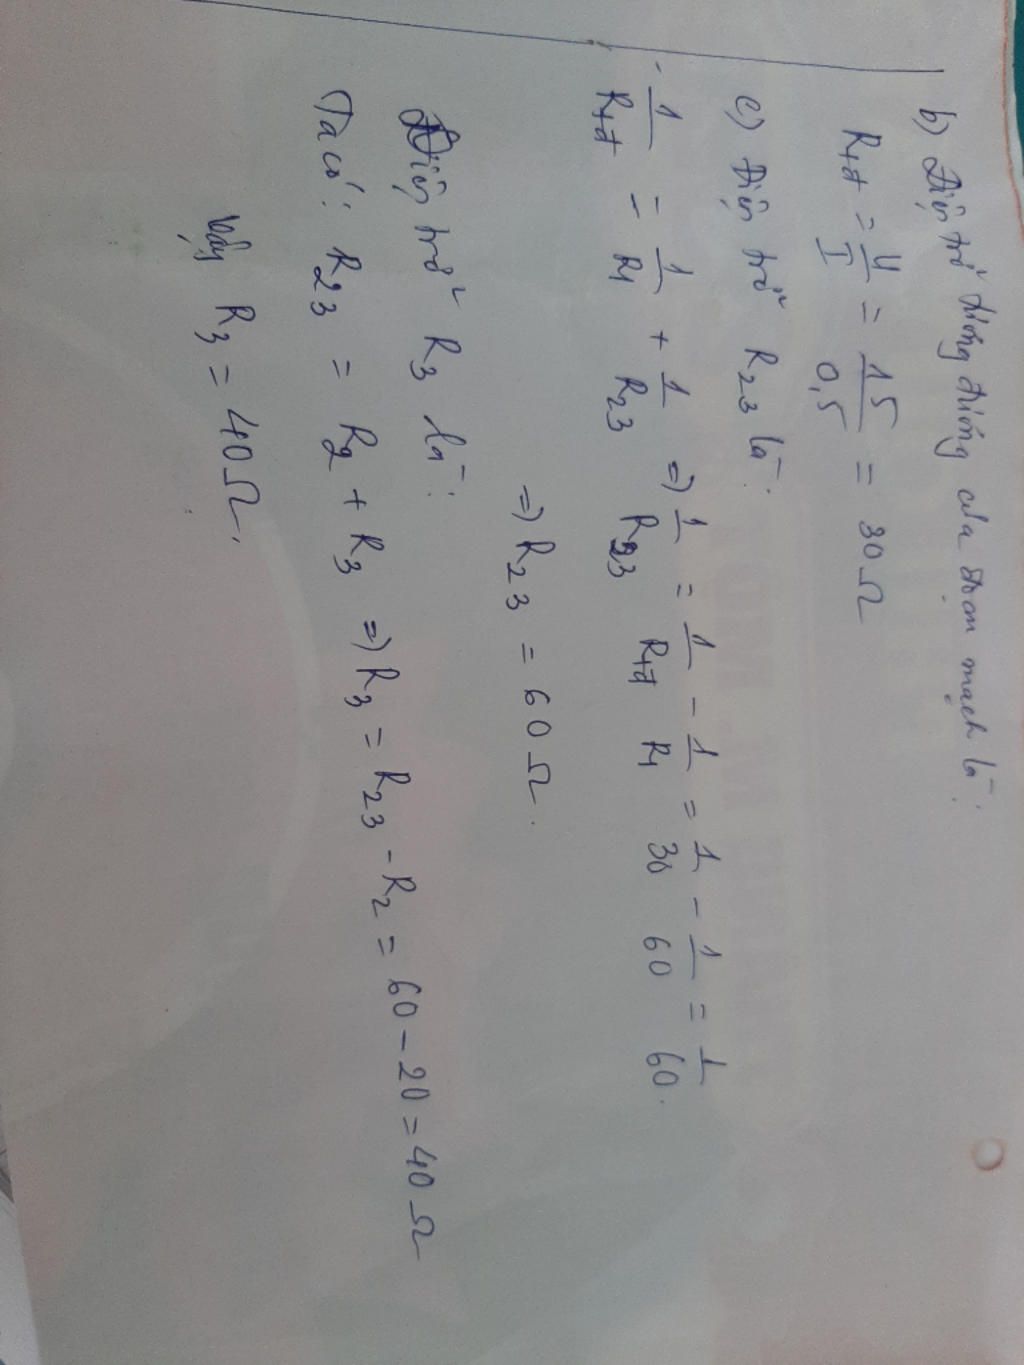 b) Điện trở tương đương của đoạn mạch là:
Rtđ = U/I = 15/0,5 = 30Ω
c) Điện trở R23 là:
1/Rtđ = 1/R1 + 1/R23 => 1/R23 = 1/Rtđ - 1/R1 = 1/30 - 1/60 = 1/60.
=> R23 = 60Ω.
Điện trở R3 là:
Ta có: R23 = R2 + R3 => R3 = R23 - R2 = 60 - 20 = 40Ω
Vậy R3 = 40Ω.